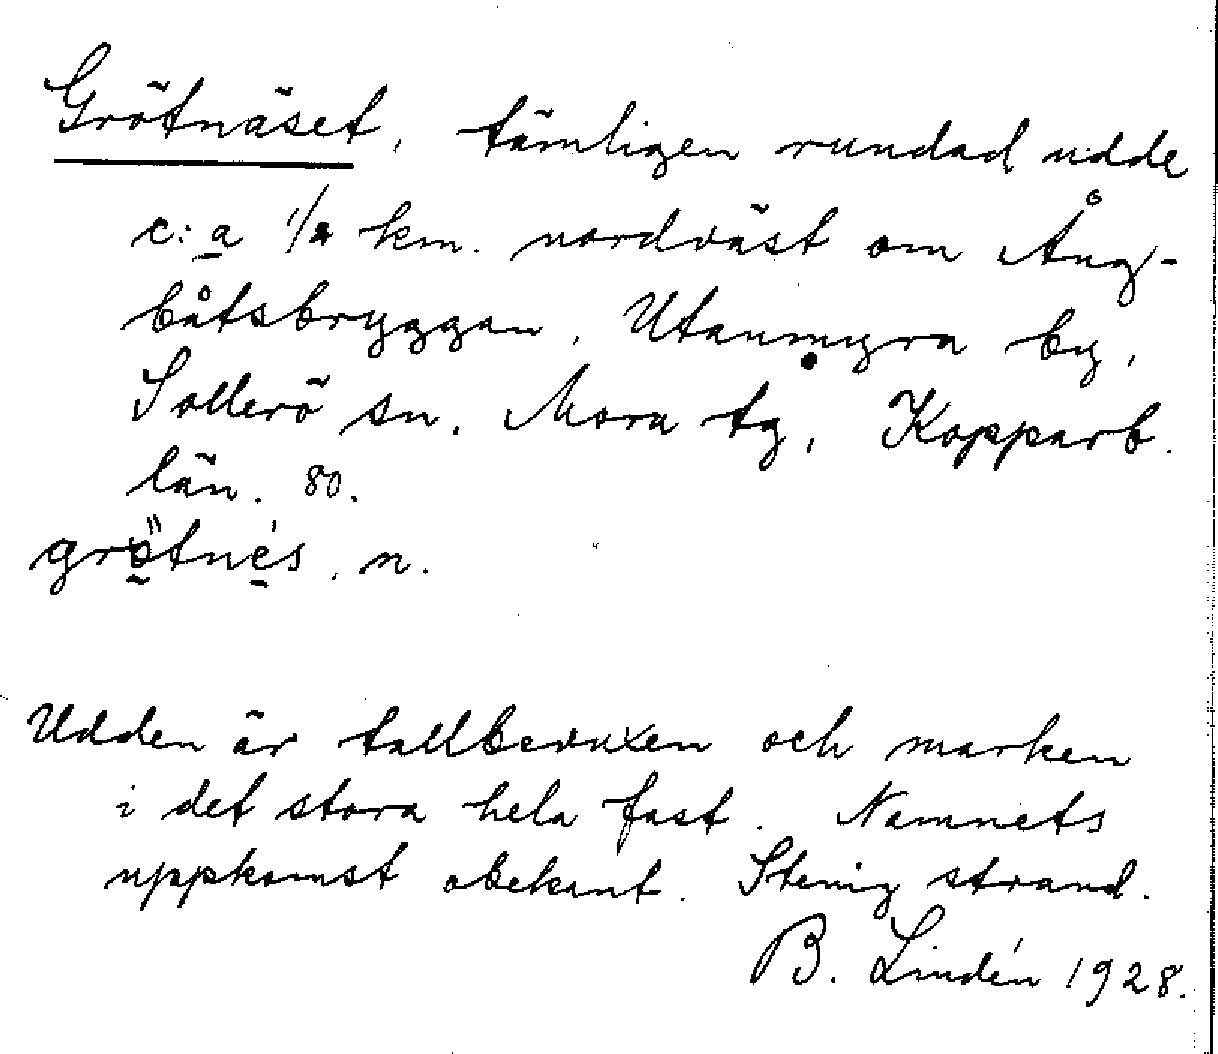 Grötnäset, tämligen rundad udde
c:a 1/2 km. nordväst om Ång-
båtsbryggan, Utanmyra by,
Sollerö sn, Mora tg, Kopparb.
län. 80.
grötnés, n.
Udden är tallbevuxen och marken
i det stora hela fast. Namnets
uppkomst obekant. Stenig strand.
B. Lindén 1928.